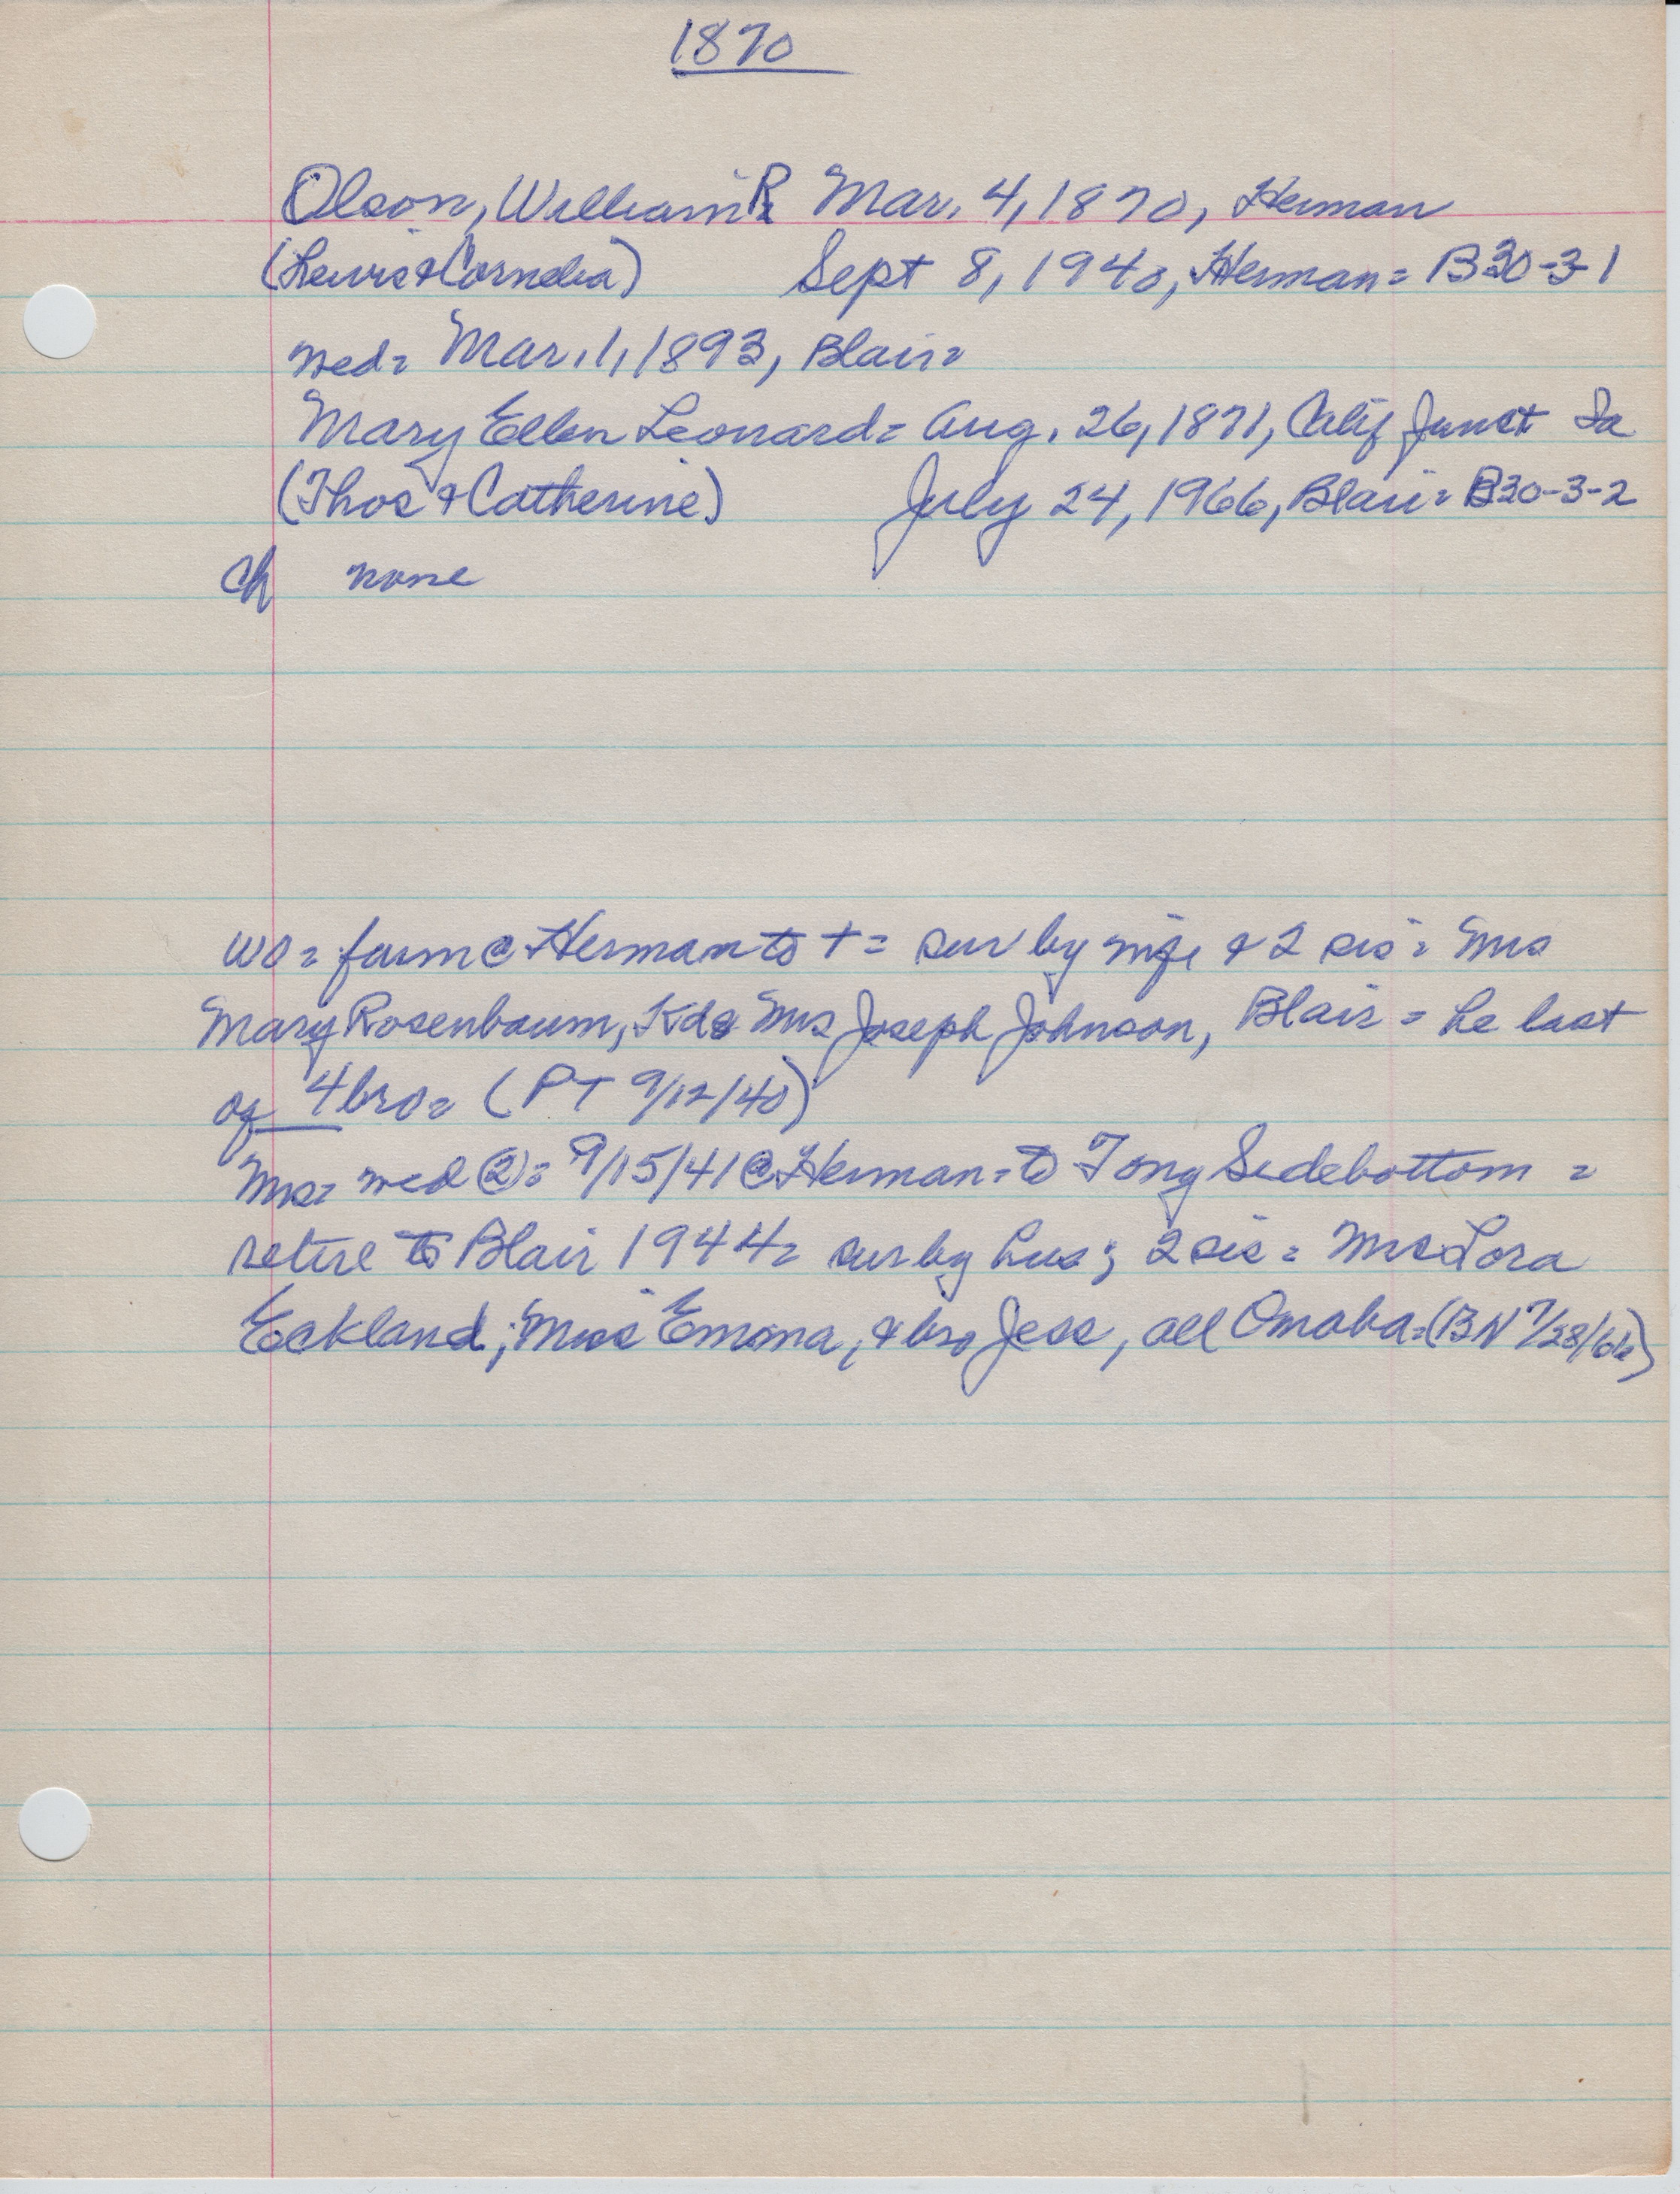 1870
Olson, William R Mar. 4, 1870, Herman
(Lewis & Cornelia) Sept 8, 1940, Herman = B30-3-1
wed = Mar. 1, 1893, Blair =
Mary Ellen Leonard = Aug. 26, 1871, Calif Junct Ia
(Thos & Catherine) July 24, 1966, Blair = B30-3-2
ch none
WO = farm @ Herman to + = sur by wife & 2 sis = Mrs
Mary Rosenbaum, Mrs Joseph Johnson, Blair = he last
of 4 bro = (PT 9/12/40)
Mrs = wed (2) = 9/15/41 @ Herman = to Tony Sidebottom =
retire to Blair 1944 = sur by hus; 2 sis = Mrs Lora
Eckland; Miss Emma, & bro Jess, all Omaha = (BN 7/28/66)